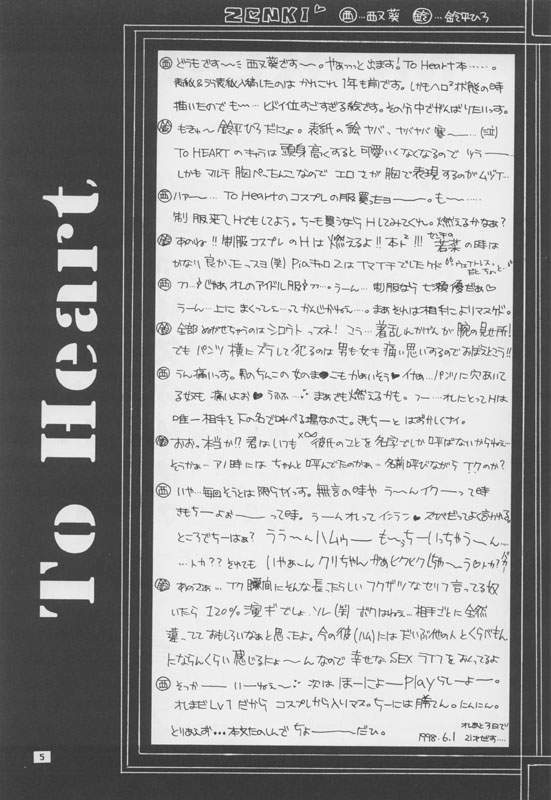 ZENKI♡ 西…西又葵 鈴…鈴平ひろ
To Heart,
西 どうもです〜ミ 西又葵です〜。やぁっっと出ます!To Heart本……。
表紙&ラフ表紙入稿したのは かれこれ1年も前です。しかもヘロ²状態の時
描いたのでも〜…ヒドイ位すごすぎる絵です。その分中でがんばりたいっす。
鈴 もきゅ〜 鈴平ひろだにょ。表紙の絵ヤバ、ヤバヤバ 寒〜…(泣)
To HEARTのキャラは頭身高くすると可愛いくなくなるので ツラー
しかもマルチ 胸ぺったんこなので エロさが胸で表現するのがムヅイ…
西 ハァー… To Heartのコスプレの服買ったヨー。も〜……
制服来てHでもしてよう。ちーも買うならHしてみてくれ。燃えるかなぁ?
鈴 あのね!!制服コスプレのHは燃えるよ!!本ト²!!! 若菜の時は
かなり良かったっスヨ(笑) Piaキャロ2はイマイチでしたケド
西 じゃぁオレのアイドル服 うーん… 制服なら七瀬優だぁ♡
うーん…上にまくって…ってかんじかねぇ…。まぁそれは相手によりマスケド。
鈴 全部ぬがせちゃうのはシロウトっスネ! コラ… 着乱れかげんが腕の見せ所!
でもパンツ横にズラして犯るのは男も女も痛い思いするのでおぼえとう!!
西 うん、痛いっす。男のちんこの女のま●こもかわいそう♥イヤぁ…パンツに穴あいて
る奴も痛いよお♥うふふ… まぁさも燃えるかも。ふー…オレにとってHは
唯一相手を下の名で呼べる場なのさ。きもちーとはずかしくナイ。
鈴 おお、本当か!? 君はいつも 彼氏のコトを名字でしか呼ばないからねぇ…
そうかぁ…アノ時にはちゃんと呼んでたのかぁ…名前呼びながらイクのか?
西 いや…毎回そうとは限らナイっす。無言の時や う〜んイク〜って時
きもちーよぉ〜って時。うーんオレってインラン♥
ところでちーはぁ? ララ〜ん ハムゥー も〜っちーいっちゃう〜ん…
…トカ?? それても いやぁ〜ん クリちゃん がぁヒクヒク
鈴 あのさぁ… イク瞬間にそんな長ったらしいフクザツなセリフ言ってる奴
いたら120%演ギでしょ。ソレ(笑) ボクはねぇ…相手ごとに全然
違ってて おもしろいなぁと思ったよ。今の彼(ハム)にはだいぶ他の人とくらべもん
にならんくらい感じるにょ〜んなので 幸せなSEXライフをおくってるよ
西 そっかー いーねぇ〜 次はほーにょーplayらしーよー。
オレまだLv1だからコスプレから入りマス。ちーには勝てん。にんにん。
とりあえず…本文たのしんでちょーだひ。
1998.6.1
オレあと3日で21才です…
5